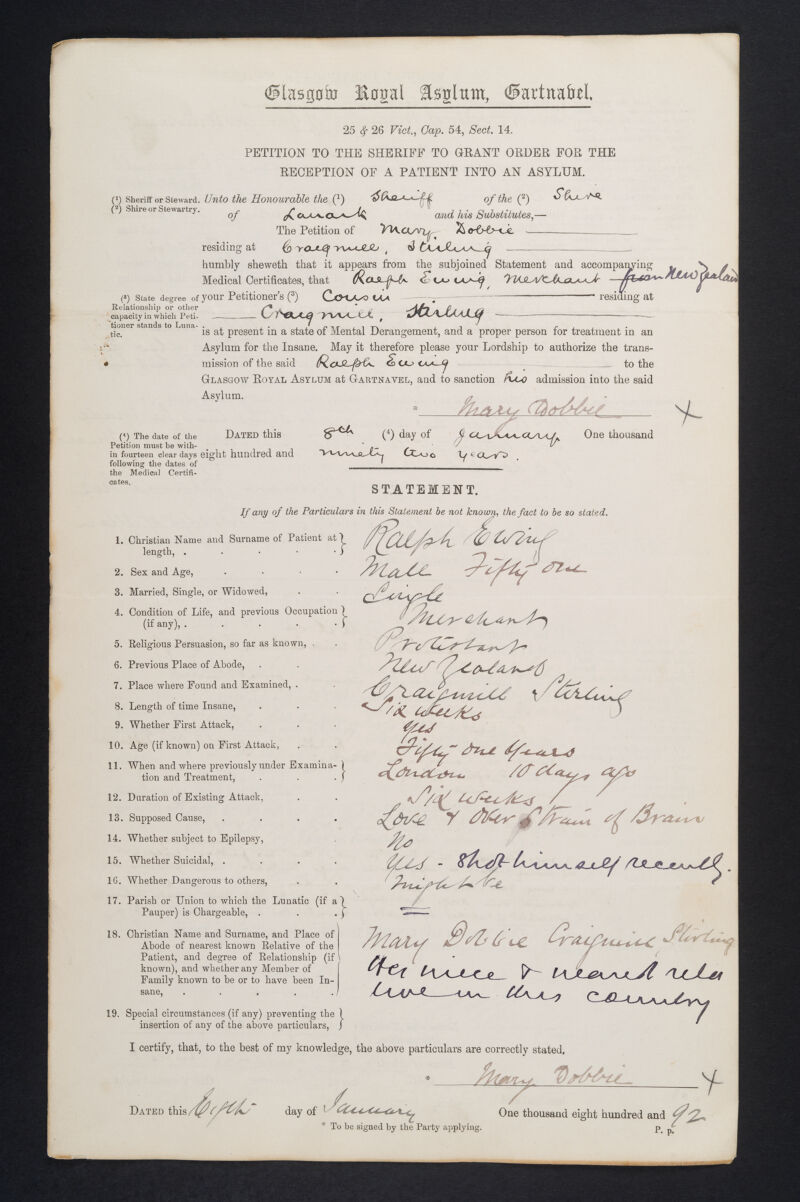 Glasgow Royal Asylum, Gartnavel.
25 & 26 Vict., Cap. 54, Sect. 14.
PETITION TO THE SHERIFF TO GRANT ORDER FOR THE
RECEPTION OF A PATIENT INTO AN ASYLUM.
(¹) Sheriff or Steward.
(²) Shire or Stewartry.
Unto the Honourable the (¹) Sheriff of the (²) Shire
of Lanark and his Substitutes,—
The Petition of Mary Dobbie
residing at Craigmill, Stirling
humbly sheweth that it appears from the subjoined Statement and accompanying
Medical Certificates, that Ralph Ewing, Merchant from New Zealand
(³) State degree of
Relationship or other
capacity in which Peti-
tioner stands to Luna-
tic.
your Petitioner's (³) Cousin residing at
Craigmill, Stirling
is at present in a state of Mental Derangement, and a proper person for treatment in an
Asylum for the Insane. May it therefore please your Lordship to authorize the trans-
mission of the said Ralph Ewing to the
GLASGOW ROYAL ASYLUM at GARTNAVEL, and to sanction his admission into the said
Asylum.
* Mary Dobbie X
(⁴) The date of the
Petition must be with-
in fourteen clear days
following the dates of
the Medical Certifi-
cates.
DATED this 8th (⁴) day of January, One thousand
eight hundred and ninety two years.
STATEMENT.
If any of the Particulars in this Statement be not known, the fact to be so stated.
1. Christian Name and Surname of Patient at
length, . . . . . Ralph Ewing
2. Sex and Age, . . . . Male Fifty one
3. Married, Single, or Widowed, . . Single
4. Condition of Life, and previous Occupation
(if any), . . . . . Merchant
5. Religious Persuasion, so far as known, . . Protestant
6. Previous Place of Abode, . . New Zealand
7. Place where Found and Examined, . . Craigmill Stirling
8. Length of time Insane, . . . Six weeks
9. Whether First Attack, . . . Yes
10. Age (if known) on First Attack, . . Fifty one Years
11. When and where previously under Examina-
tion and Treatment, . . . London 10 days ago
12. Duration of Existing Attack, . . Six weeks
13. Supposed Cause, . . . . Love & Over Strain of Brain
14. Whether subject to Epilepsy, No
15. Whether Suicidal, . . . . Yes - Shot himself recently.
16. Whether Dangerous to others, . . Might be
17. Parish or Union to which the Lunatic (if a
Pauper) is Chargeable, . . .
18. Christian Name and Surname, and Place of
Abode of nearest known Relative of the
Patient, and degree of Relationship (if
known), and whether any Member of
Family known to be or to have been In-
sane, . . . . .
Mary Dobbie Craigmill, Stirling
His niece & nearest rela
tive in this country
19. Special circumstances (if any) preventing the
insertion of any of the above particulars,
I certify, that, to the best of my knowledge, the above particulars are correctly stated.
* Mary Dobbie X
DATED this Eighth day of January One thousand eight hundred and 92
* To be signed by the Party applying.
P. p.